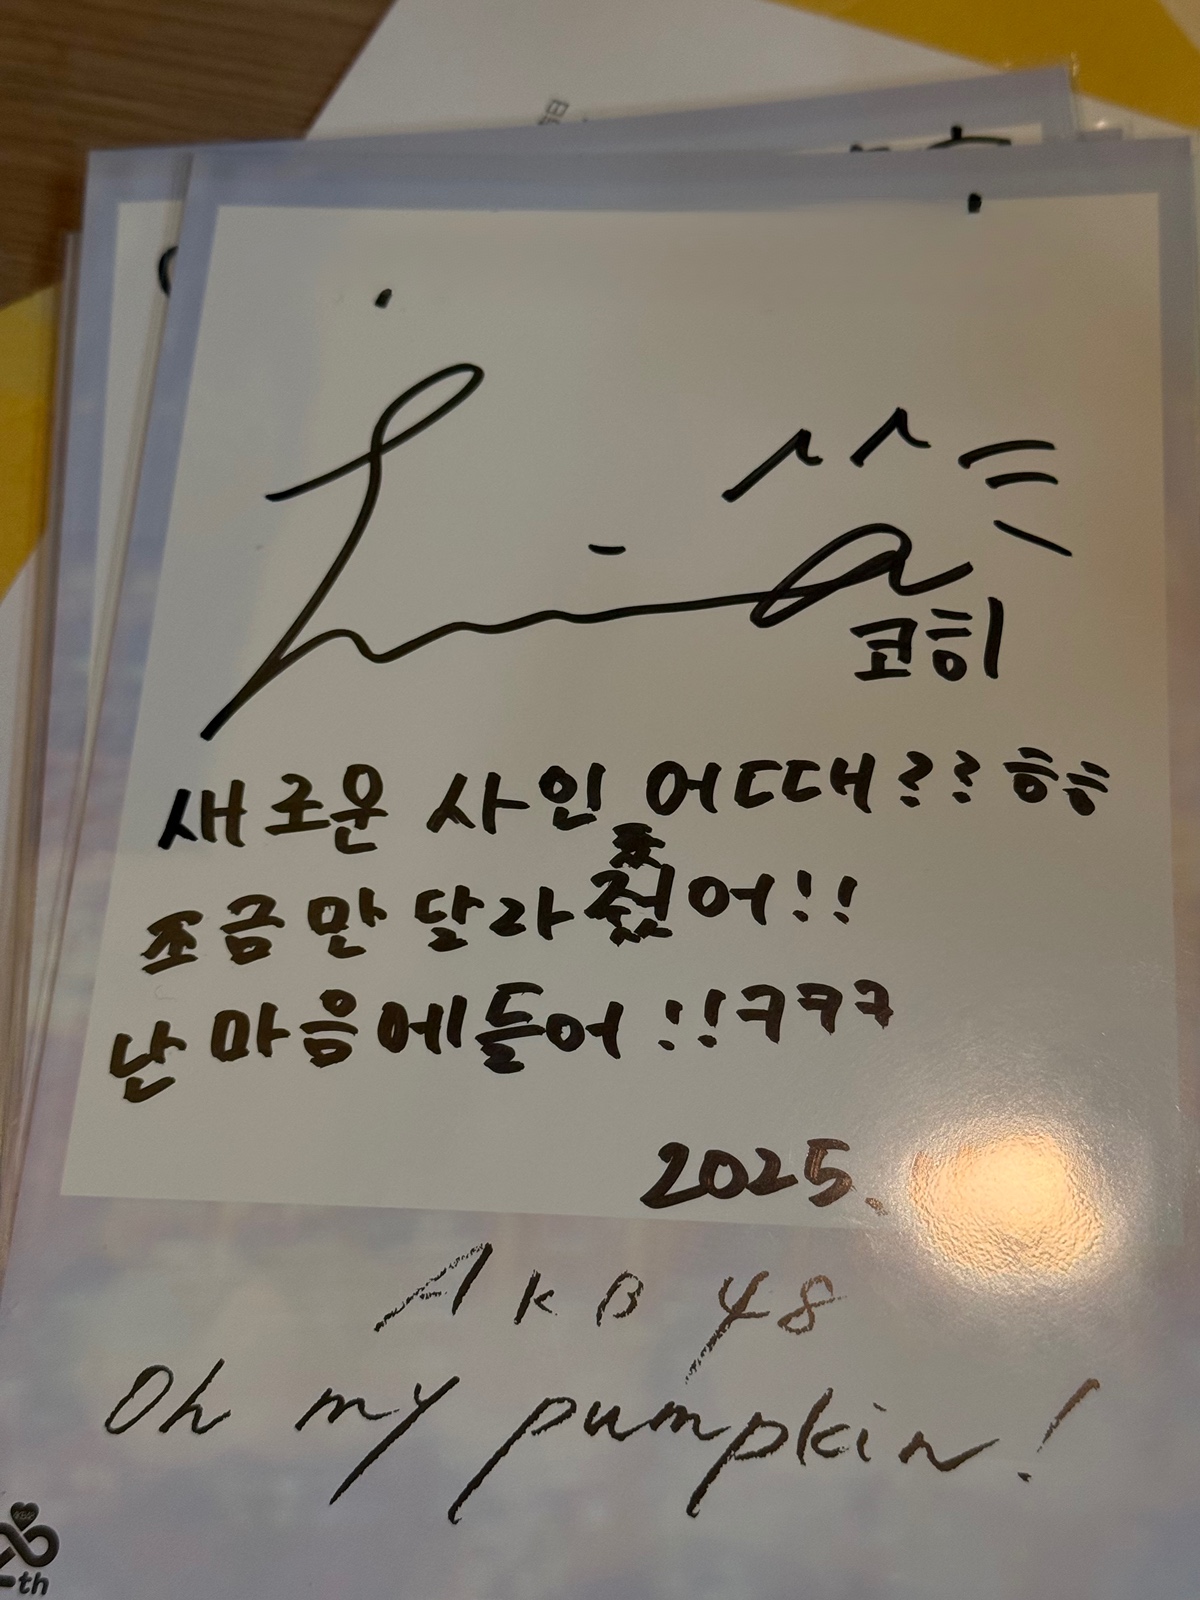 코히
새로운 사인 어때?? ㅎㅎ
조금만 달라졌어!!
난 마음에들어!! ㅋㅋㅋ
2025.
AKB48
Oh my pumpkin!
th